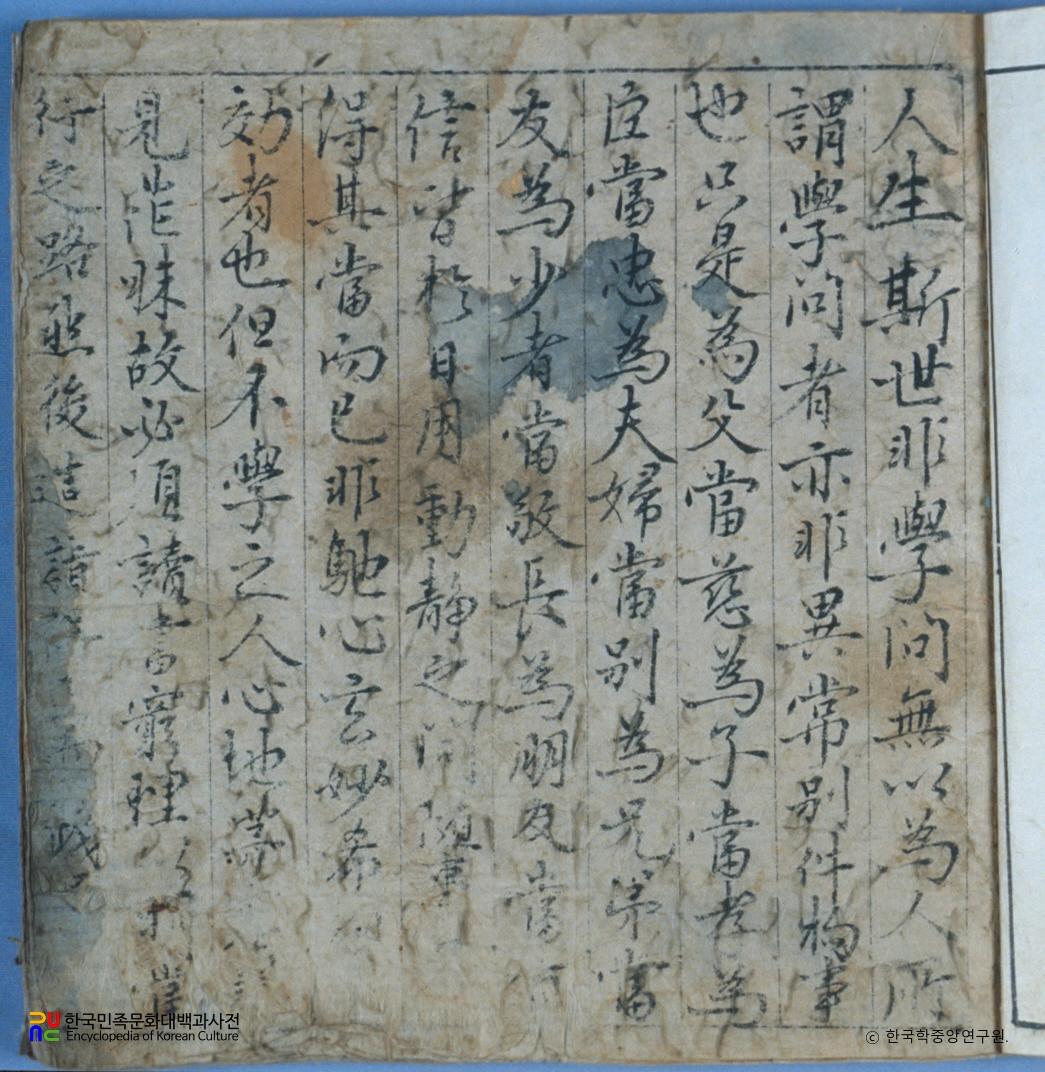 人生斯世非學問無以為人所
謂學問者亦非異常別件物事
也只是為父當慈為子當孝為
臣當忠為夫婦當別為兄弟當
友為少者當敬長為朋友當有
信皆於日用動靜之間隨事
得其當而已非馳心玄妙希
効者也但不學之人心地茅
見茫昧故必須讀書窮理以明當
行之路然後造詣
한국민족문화대백과사전
Encyclopedia of Korean Culture
© 한국학중앙연구원.